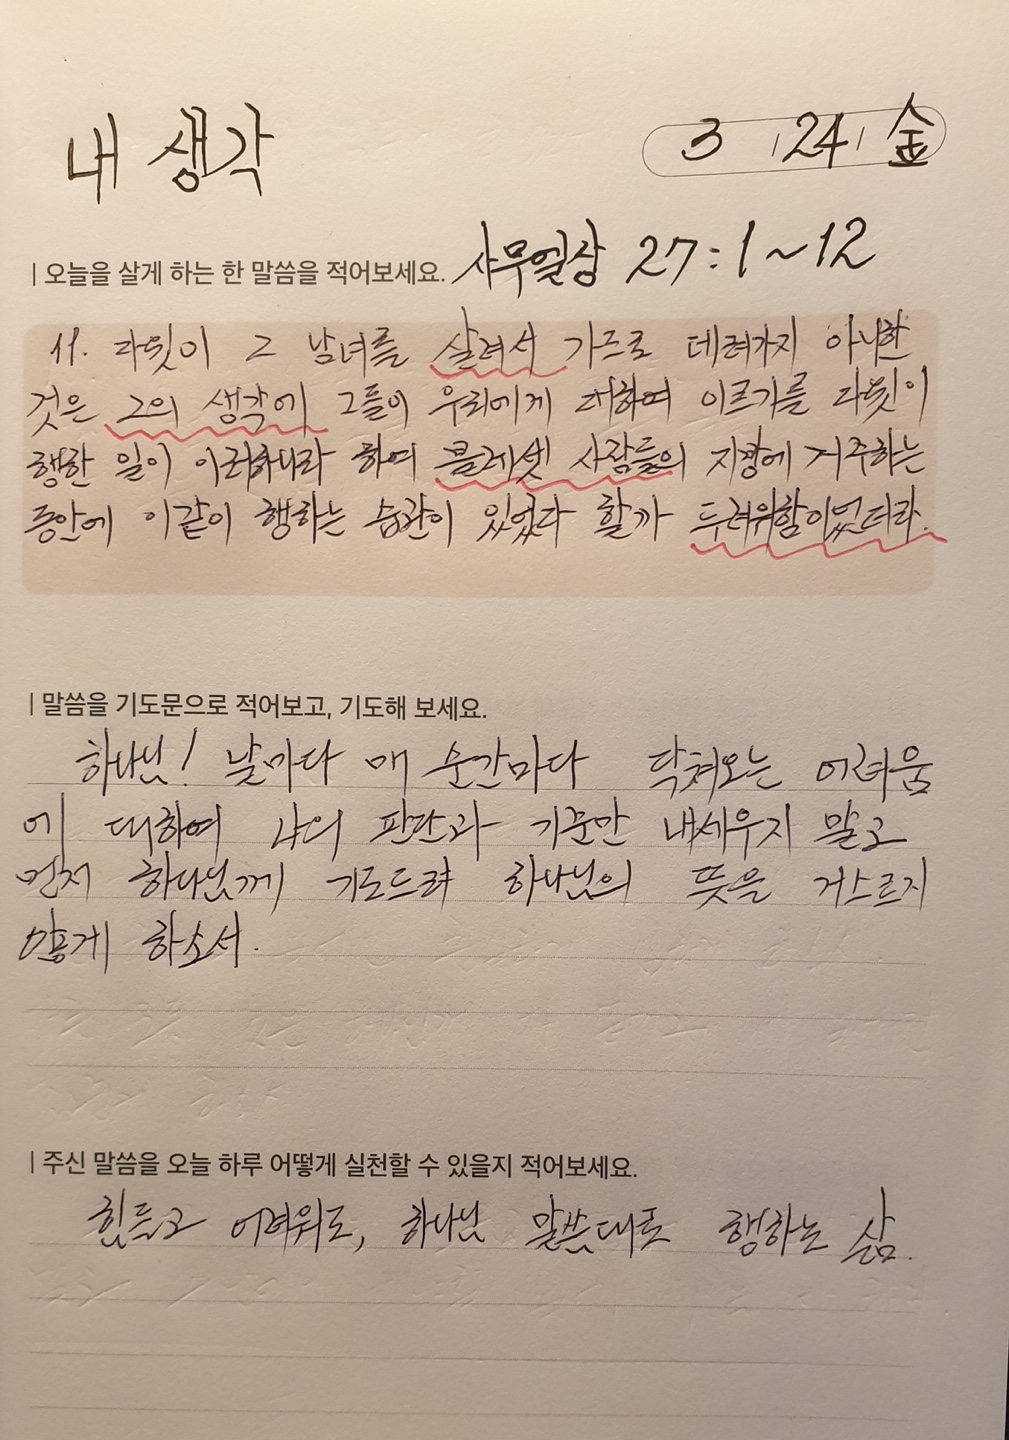 내 생각
3 / 24 / 金
| 오늘을 살게 하는 한 말씀을 적어보세요. 사무엘상 27:1~12
11. 다윗이 그 남녀를 살려서 가드로 데려가지 아니한
것은 그의 생각에 그들이 우리에게 대하여 이르기를 다윗이
행한 일이 이러하니라 하여 블레셋 사람들의 지방에 거주하는
동안에 이같이 행하는 습관이 있었다 할까 두려워함이었더라.
| 말씀을 기도문으로 적어보고, 기도해 보세요.
하나님! 날마다 매 순간마다 닥쳐오는 어려움
에 대하여 나의 판단과 기준만 내세우지 말고
먼저 하나님께 기도드려 하나님의 뜻을 거스르지
않게 하소서.
| 주신 말씀을 오늘 하루 어떻게 실천할 수 있을지 적어보세요.
힘들고 어려워도, 하나님 말씀대로 행하는 삶.